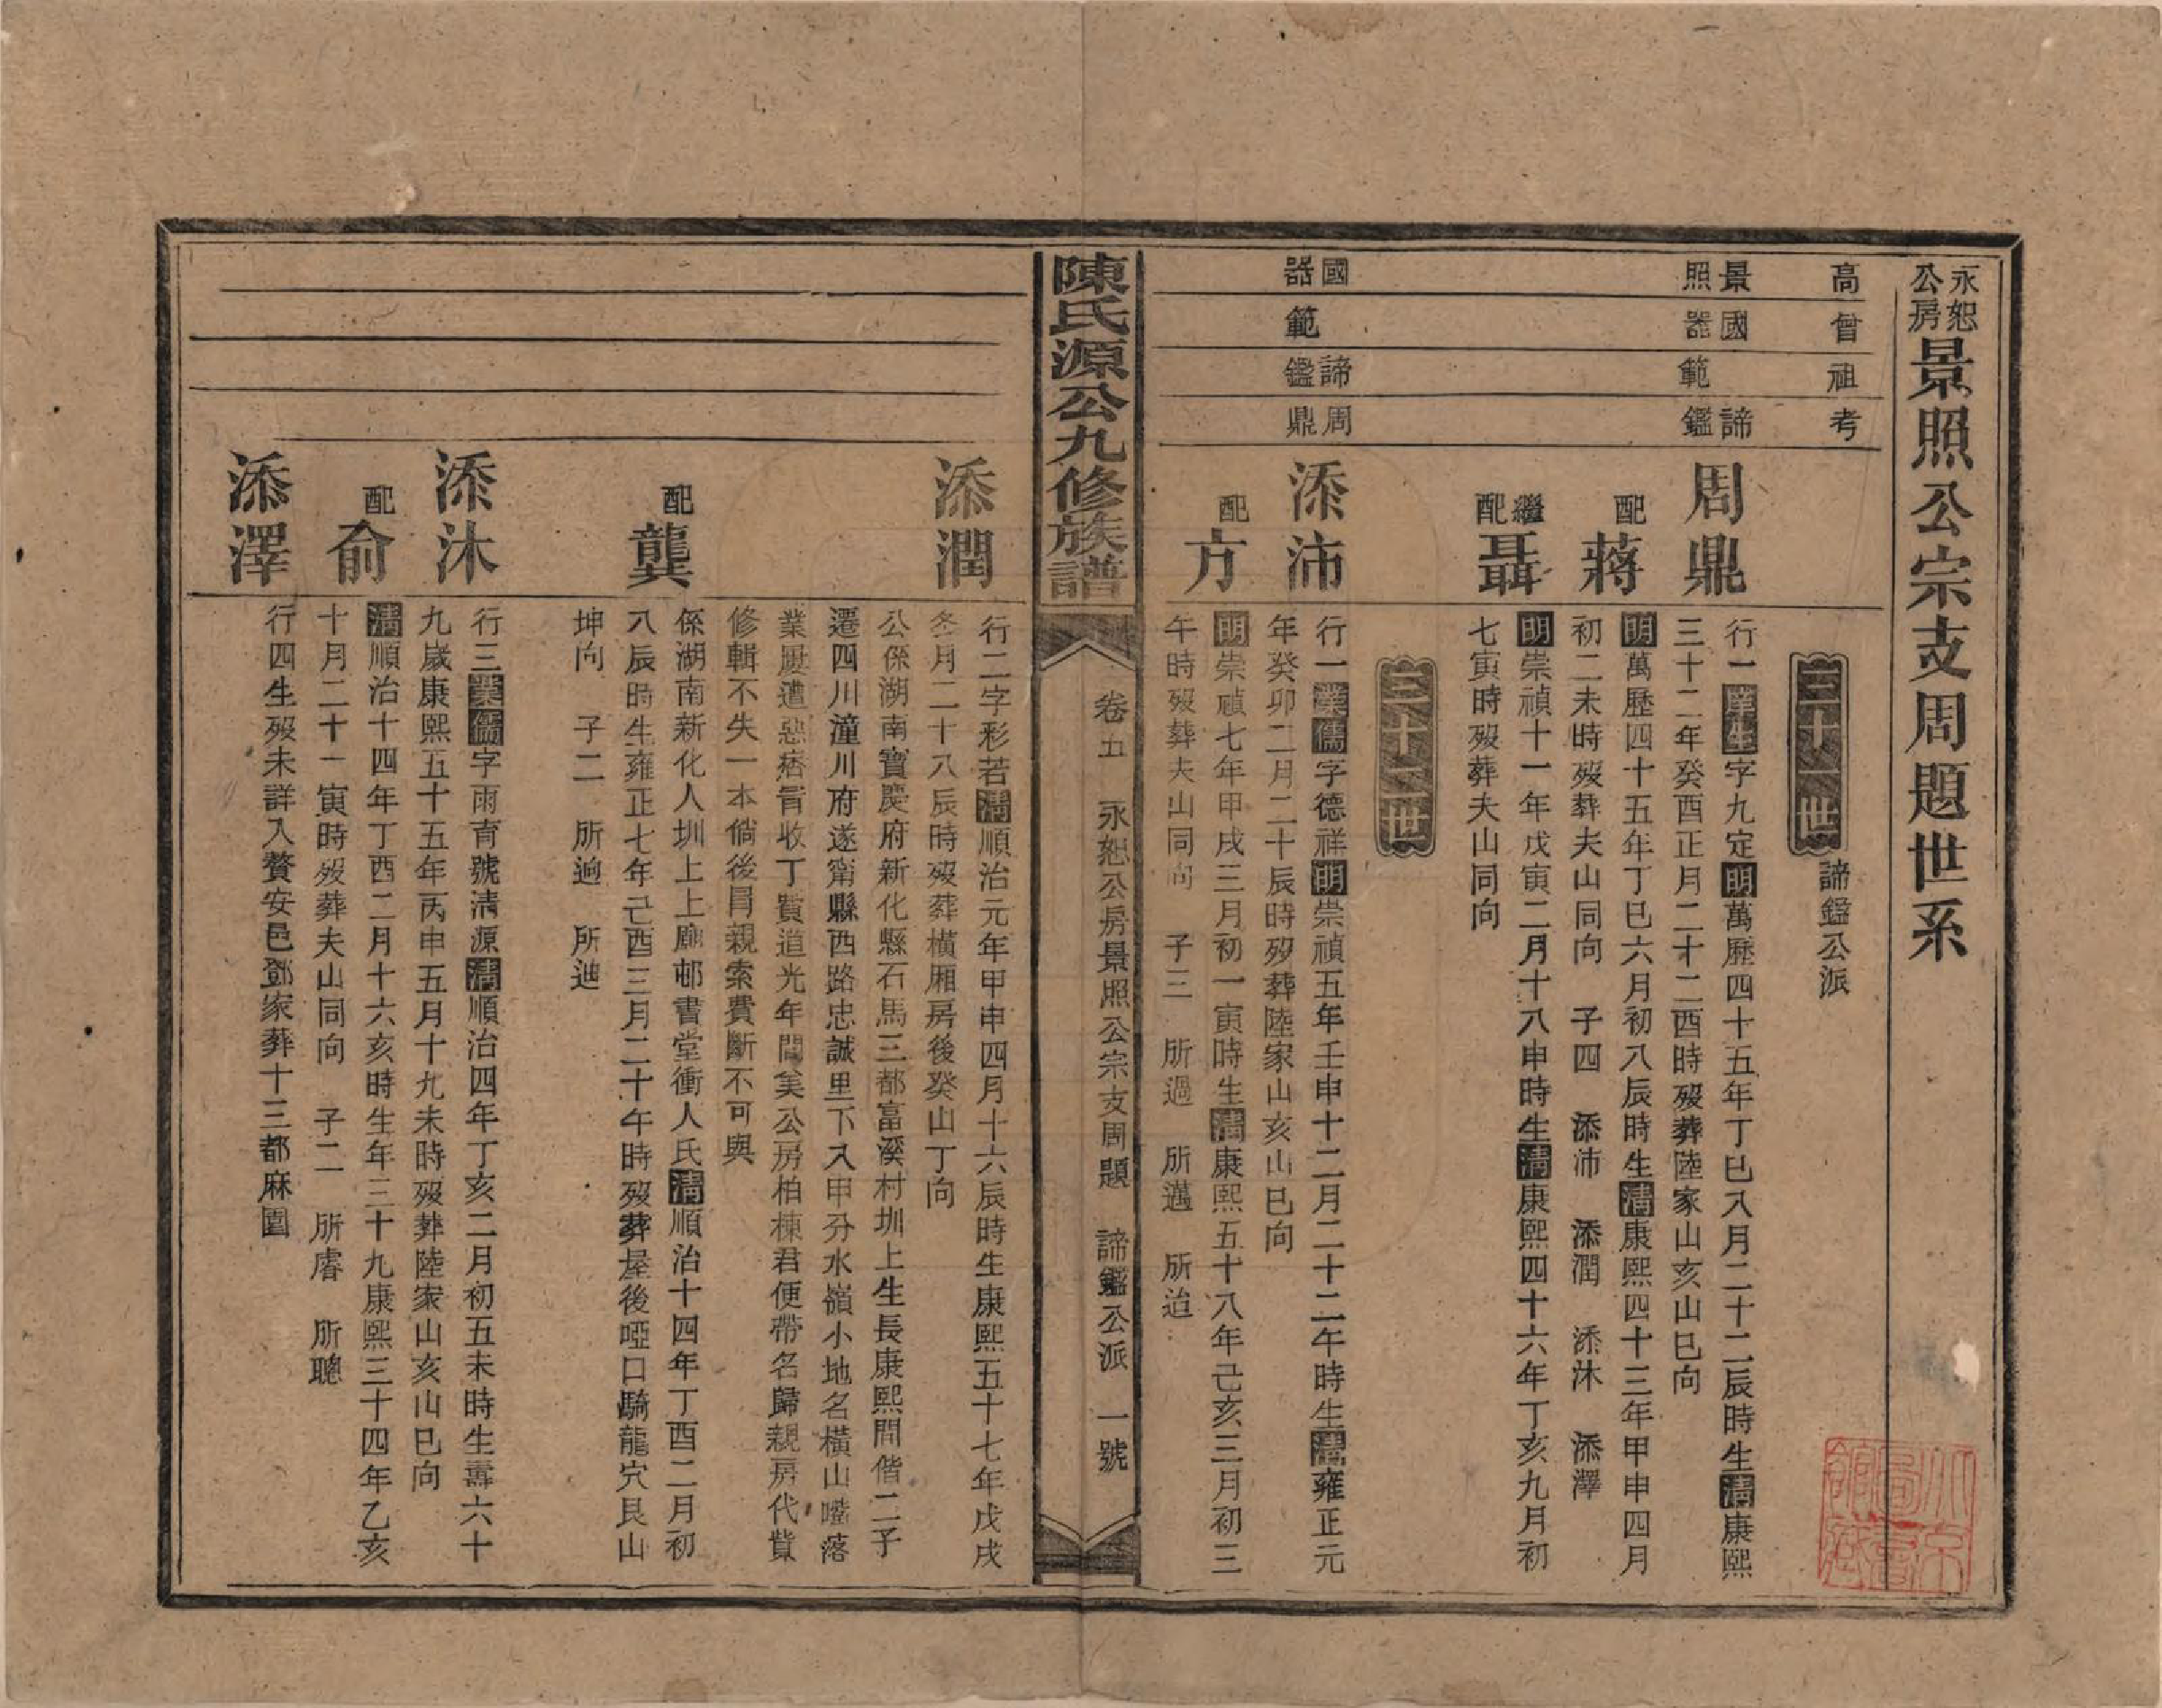 永恕公房景照公宗支周題世系
高曾祖考
三十一世
諦鑑公派
景照 國器 範 諦鑑
周鼎
行一業生字九定明萬歷四十五年丁巳八月二十二辰時生清康熙
三十二年癸酉正月二十二酉時歿葬陸家山亥山巳向
配蔣
明萬歷四十五年丁巳六月初八辰時生清康熙四十三年甲申四月
初二未時歿葬夫山同向 子四 添沛 添潤 添沐 添澤
繼配聶
明崇禎十一年戊寅二月十八申時生清康熙四十六年丁亥九月初
七寅時歿葬夫山同向
三十二世
國器 範 諦鑑 周鼎
添沛
行一業儒字德祥明崇禎五年壬申十二月二十二午時生清雍正元
年癸卯二月二十辰時歿葬陸家山亥山巳向
配方
明崇禎七年甲戌三月初一寅時生清康熙五十八年己亥三月初三
午時歿葬夫山同向 子三 所過 所邁 所迨
陳氏源公九修族譜
卷五 永恕公房景照公宗支周題 諦鑑公派 一號
添潤
行二字彩若清順治元年甲申四月十六辰時生康熙五十七年戊戌
冬月二十八辰時歿葬橫厢房後癸山丁向
公係湖南寶慶府新化縣石馬三都富溪村圳上生長康熙間偕二子
遷四川潼川府遂甯縣西路忠誠里下入甲分水嶺小地名橫山噔落
業屢遭惡痞冒收丁費道光年間美公房柏棟君便帶名歸親房代貲
修輯不失一本倘後冒親索費斷不可與
配龔
係湖南新化人圳上上廟邨書堂衝人氏清順治十四年丁酉二月初
八辰時生雍正七年己酉三月二十午時歿葬屋後啞口騎龍穴艮山
坤向 子二 所逈 所迪
添沐
行三業儒字雨育號清源清順治四年丁亥二月初五未時生壽六十
九歲康熙五十五年丙申五月十九未時歿葬陸家山亥山巳向
配俞
清順治十四年丁酉二月十六亥時生年三十九康熙三十四年乙亥
十月二十一寅時歿葬夫山同向 子二 所睿 所聰
添澤
行四生歿未詳入贅安邑鄧家葬十三都麻園